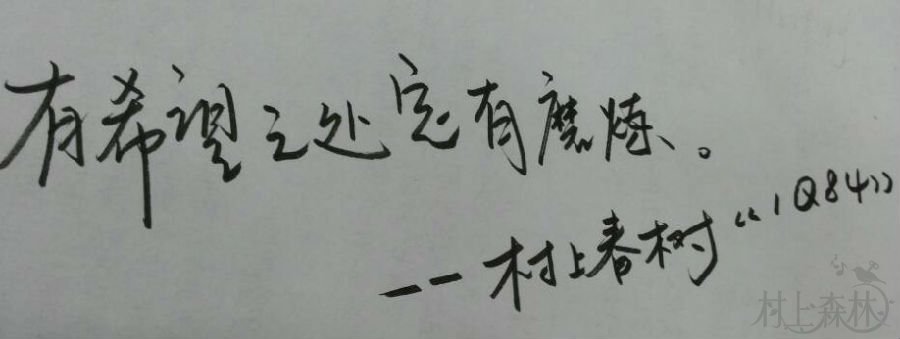 有希望之处定有磨炼。
——村上春树《1Q84》
村上森林